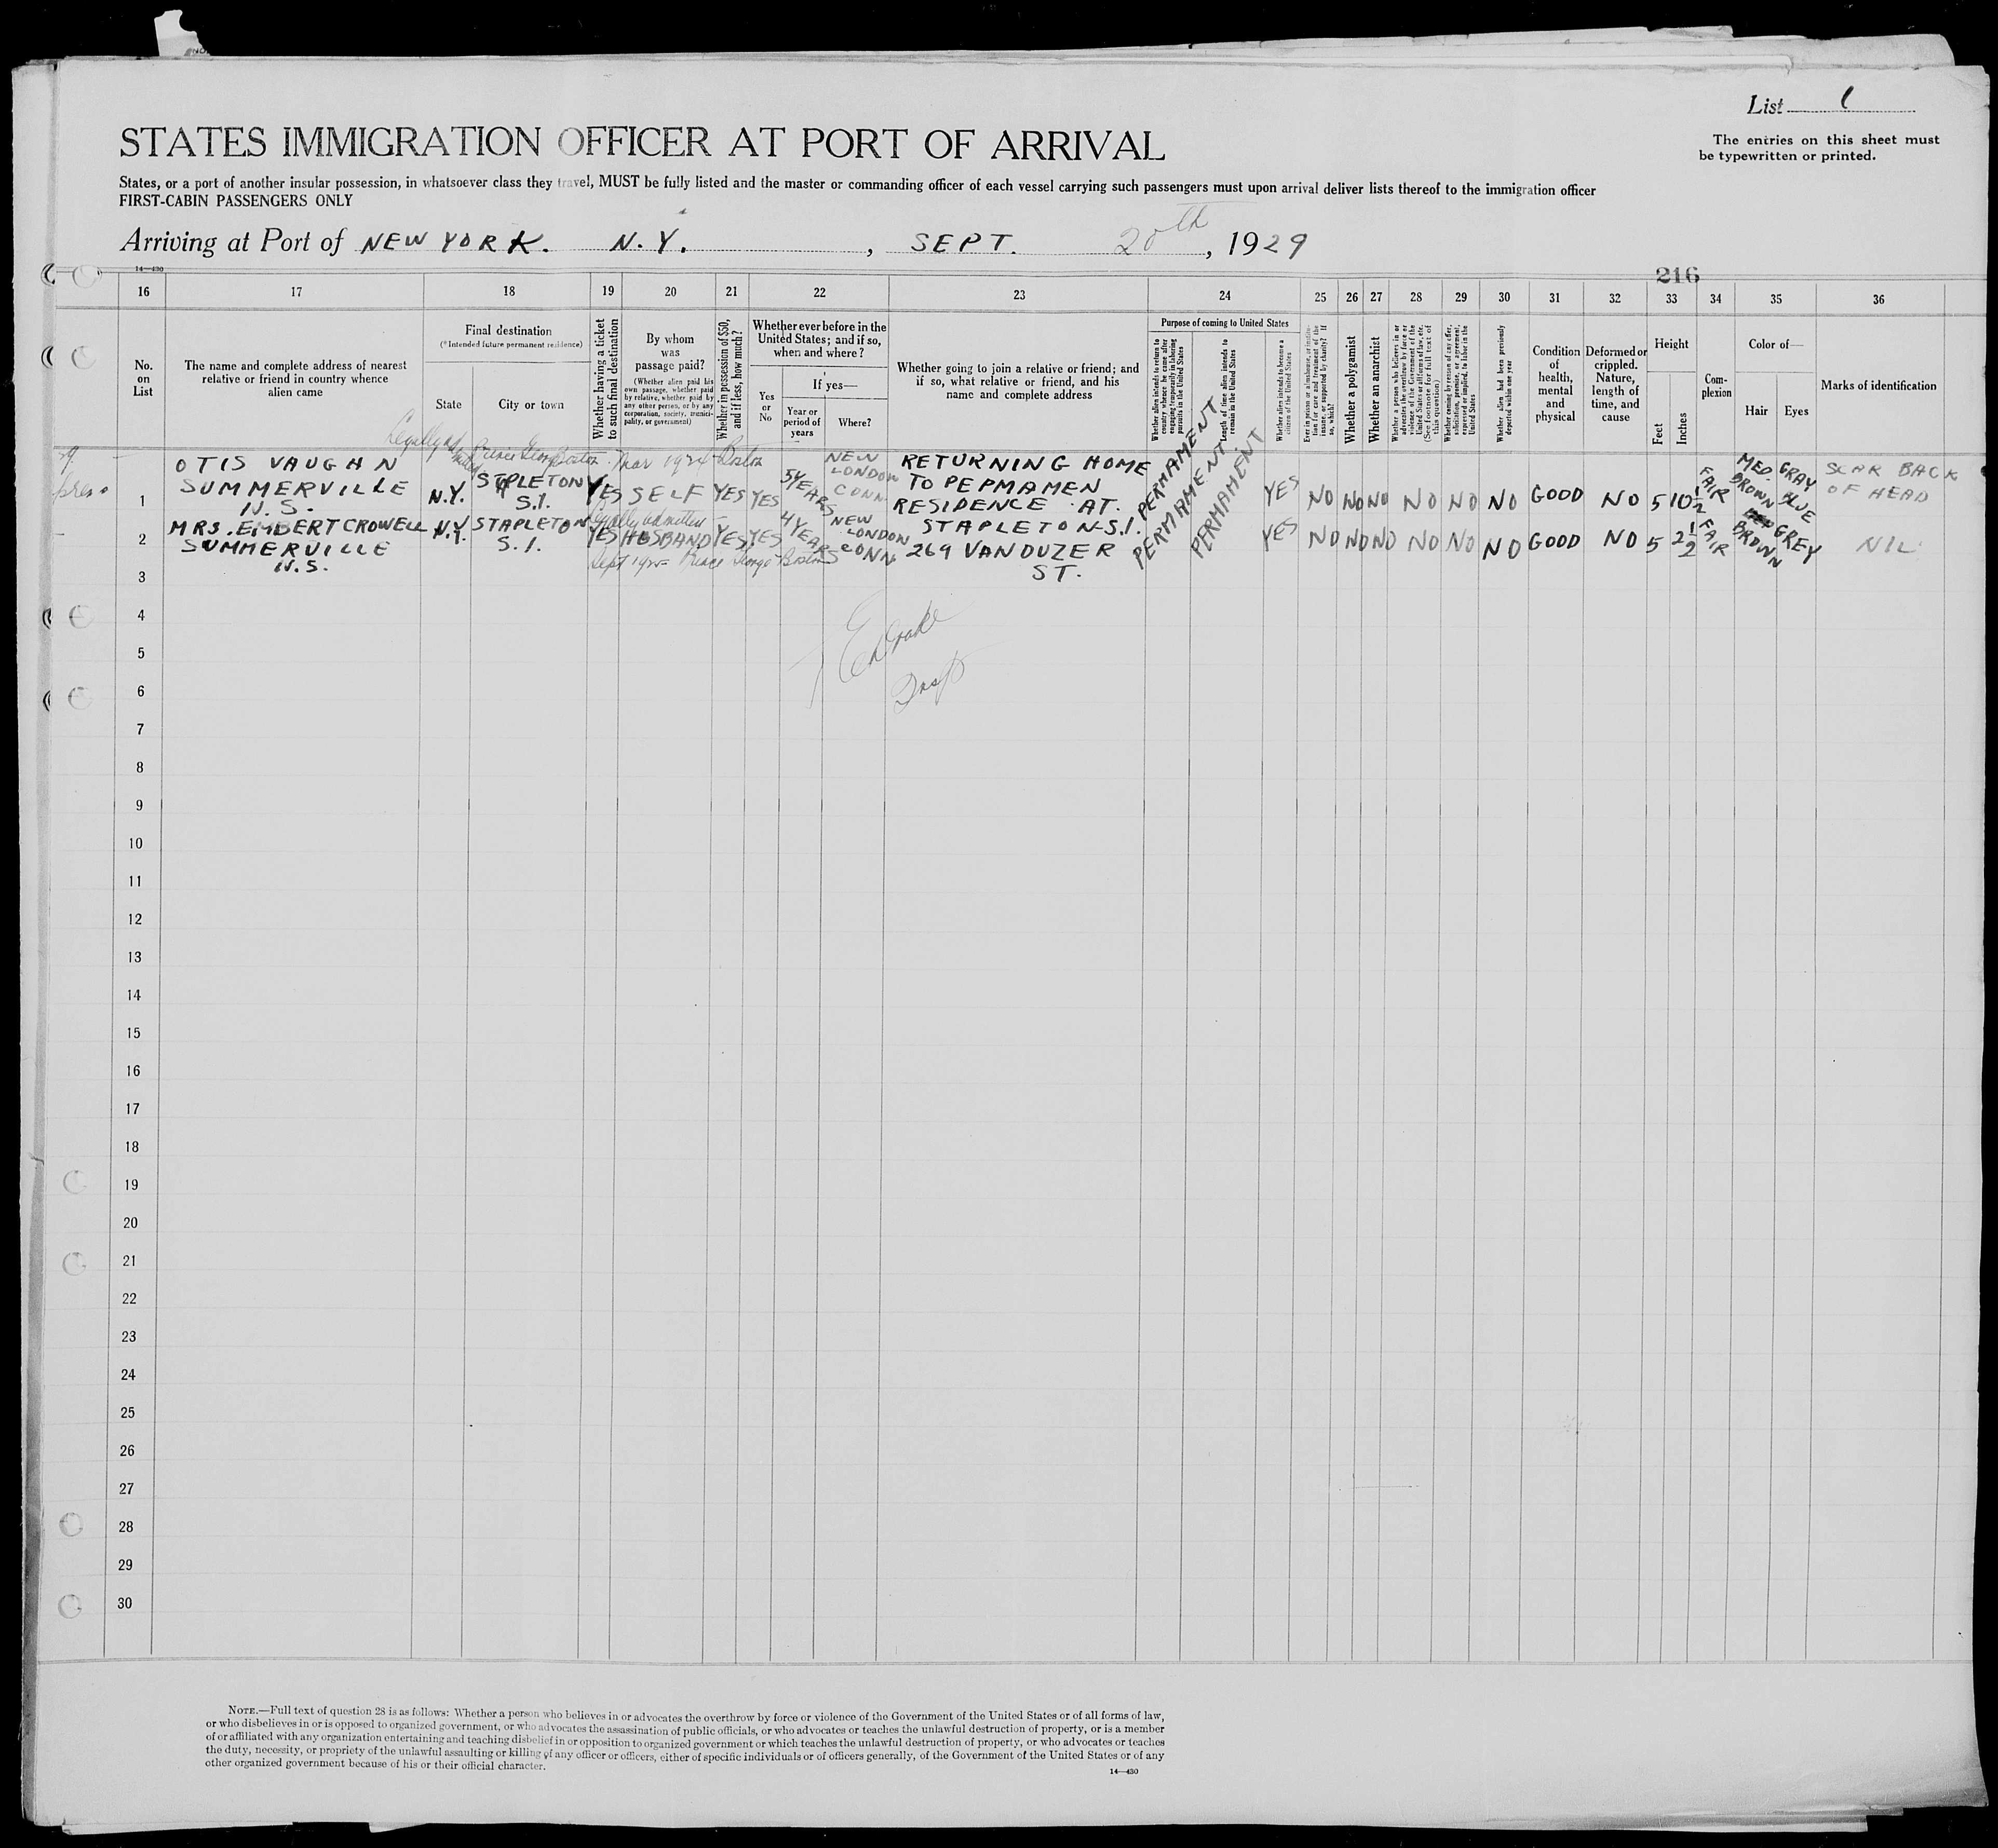 List 1
The entries on this sheet must
be typewritten or printed.
STATES IMMIGRATION OFFICER AT PORT OF ARRIVAL
States, or a port of another insular possession, in whatsoever class they travel, MUST be fully listed and the master or commanding officer of each vessel carrying such passengers must upon arrival deliver lists thereof to the immigration officer
FIRST-CABIN PASSENGERS ONLY
Arriving at Port of NEW YORK. N.Y. , SEPT. 20th , 1929
14—430
216
16 17 18 19 20 21 22 23 24 25 26 27 28 29 30 31 32 33 34 35 36
No.
on
List
The name and complete address of nearest
relative or friend in country whence
alien came
Final destination
(*Intended future permanent residence)
State
City or town
Whether having a ticket
to such final destination
By whom
was
passage paid?
(Whether alien paid his
own passage, whether paid
by relative, whether paid by
any other person, or by any
corporation, society, munici-
pality, or government)
Whether in possession of $50,
and if less, how much?
Whether ever before in the
United States; and if so,
when and where?
Yes
or
No
If yes—
Year or
period of
years
Where?
Whether going to join a relative or friend; and
if so, what relative or friend, and his
name and complete address
Purpose of coming to United States
Whether alien intends to return to
country whence he came after
engaging temporarily in laboring
pursuits in the United States
Length of time alien intends to
remain in the United States
Whether alien intends to become a
citizen of the United States
Ever in prison or almshouse, or institu-
tion for care and treatment of the
insane, or supported by charity? If
so, which?
Whether a polygamist
Whether an anarchist
Whether a person who believes in or
advocates the overthrow by force or
violence of the Government of the
United States or all forms of law, etc.
(See footnote for full text of
this question)
Whether coming by reason of any offer,
solicitation, promise, or agreement,
expressed or implied, to labor in the
United States
Whether alien had been previously
deported within one year
Condition
of
health,
mental
and
physical
Deformed or
crippled.
Nature,
length of
time, and
cause
Height
Feet
Inches
Com-
plexion
Color of—
Hair
Eyes
Marks of identification
Legally ad
mitted Prince George Boston Mar 1924 Boston
1
OTIS VAUGHN
SUMMERVILLE
N.S.
N.Y.
STAPLETON
S.I.
YES SELF YES YES
5 YEARS
NEW
LONDON
CONN
RETURNING HOME
TO PEPMAMEN
RESIDENCE AT.
STAPLETON-S.I.
269 VANDUZER
ST.
PERMAMENT
PERMAMENT
PERMAMENT
YES NO NO NO NO NO NO GOOD NO 5 10 1/2
FAIR
MED.
BROWN
GRAY
BLUE
SCAR BACK
OF HEAD
2
MRS. EMBERT CROWELL
SUMMERVILLE
N.S.
N.Y.
STAPLETON
S.I.
Legally admitted
YES HUSBAND YES. YES
4 YEARS
NEW
LONDON
CONN
Sept 1925 Prince George Boston
YES NO NO NO NO NO NO GOOD NO 5 2 1/2
FAIR
BROWN
GREY
NIL
3
4
5
6
Insp
7
8
9
10
11
12
13
14
15
16
17
18
19
20
21
22
23
24
25
26
27
28
29
30
NOTE.—Full text of question 28 is as follows: Whether a person who believes in or advocates the overthrow by force or violence of the Government of the United States or of all forms of law,
or who disbelieves in or is opposed to organized government, or who advocates the assassination of public officials, or who advocates or teaches the unlawful destruction of property, or is a member
of or affiliated with any organization entertaining and teaching disbelief in or opposition to organized government or which teaches the unlawful destruction of property, or who advocates or teaches
the duty, necessity, or propriety of the unlawful assaulting or killing of any officer or officers, either of specific individuals or of officers generally, of the Government of the United States or of any
other organized government because of his or their official character.
14—430